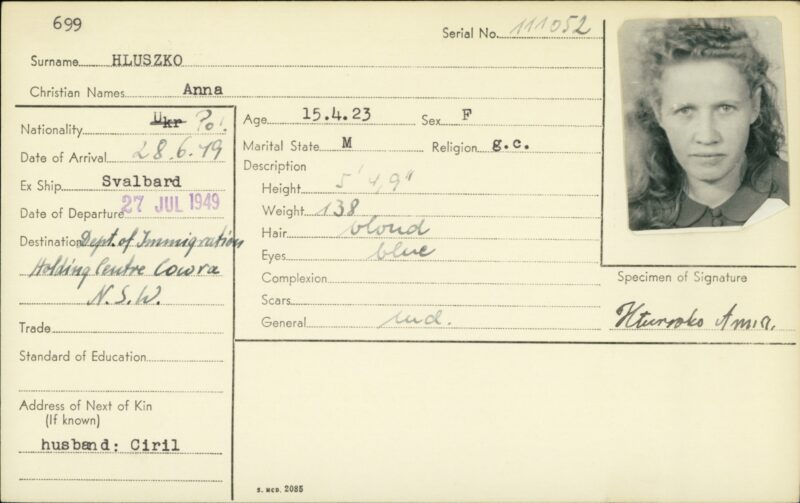 699
Serial No. 111052
Surname HLUSZKO
Christian Names Anna
Nationality Ukr Pol.
Date of Arrival 28.6.49
Ex Ship Svalbard
Date of Departure 27 JUL 1949
Destination Dept. of Immigration
Holding Centre Cowra
N.S.W.
Trade
Standard of Education
Address of Next of Kin
(If known)
husband: Ciril
Age 15.4.23 Sex F
Marital State M Religion g.c.
Description
Height 5' 4,9"
Weight 138
Hair blond
Eyes blue
Complexion
Scars
General
Specimen of Signature
S. MCD. 2085